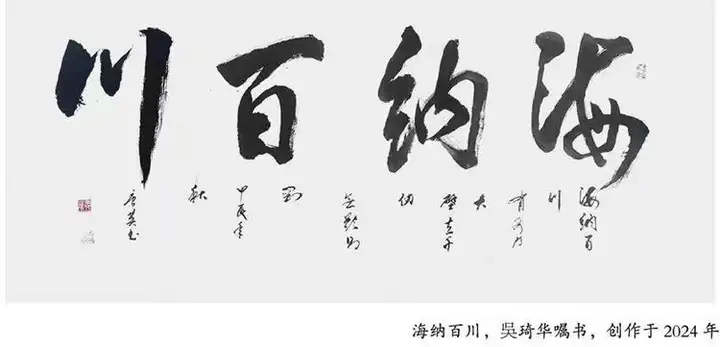 海纳百川
海纳百
川
有容乃
大
壁立千
仞
无欲则
刚
甲辰年
秋
海纳百川，吳琦华嘱书，创作于 2024 年